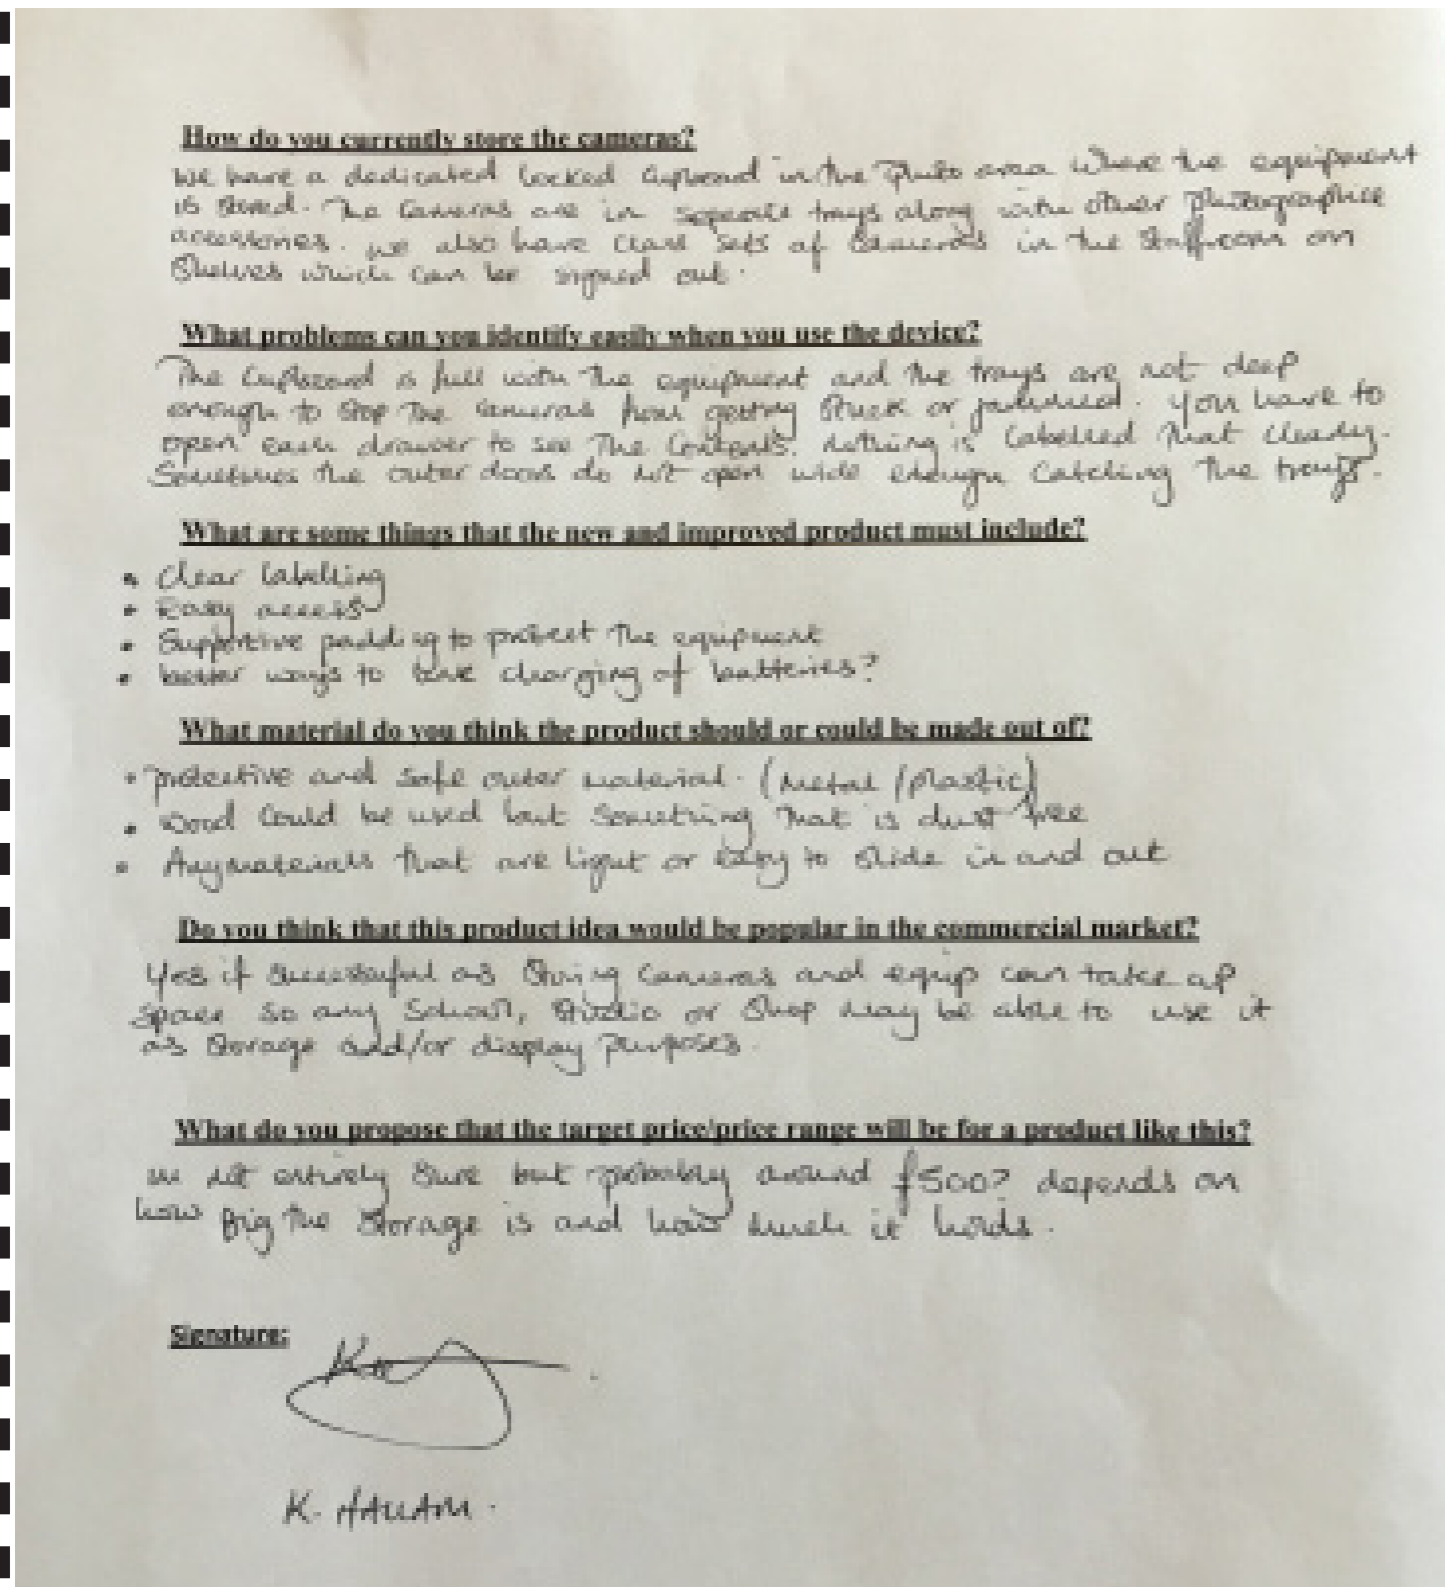 How do you currently store the cameras?
We have a dedicated locked cupboard in the Photo area where the equipment
is stored. The cameras are in seperate trays along with other photographic
accessories. we also have class sets of cameras in the staffroom on
shelves which can be signed out.
What problems can you identify easily when you use the device?
The cupboard is full with the equipment and the trays are not deep
enough to stop the cameras from getting stuck or jammed. You have to
open each drawer to see the contents. nothing is labelled that clearly.
Sometimes the outer doors do not open wide enough catching the trays.
What are some things that the new and improved product must include?
• Clear labelling
• Easy access
• Supportive padding to protect the equipment
• better ways to charging of batteries?
What material do you think the product should or could be made out of?
• protective and safe outer material. (metal/plastic)
• wood could be used but something that is dust free
• Any materials that are light or easy to slide in and out
Do you think that this product idea would be popular in the commercial market?
Yes if successful as storing cameras and equip can take up
space so any school, studio or shop may be able to use it
as storage and/or display purposes.
What do you propose that the target price/price range will be for a product like this?
im not entirely sure but probably around £500? depends on
how big the storage is and how much it holds.
Signature:
K. HALLAM.